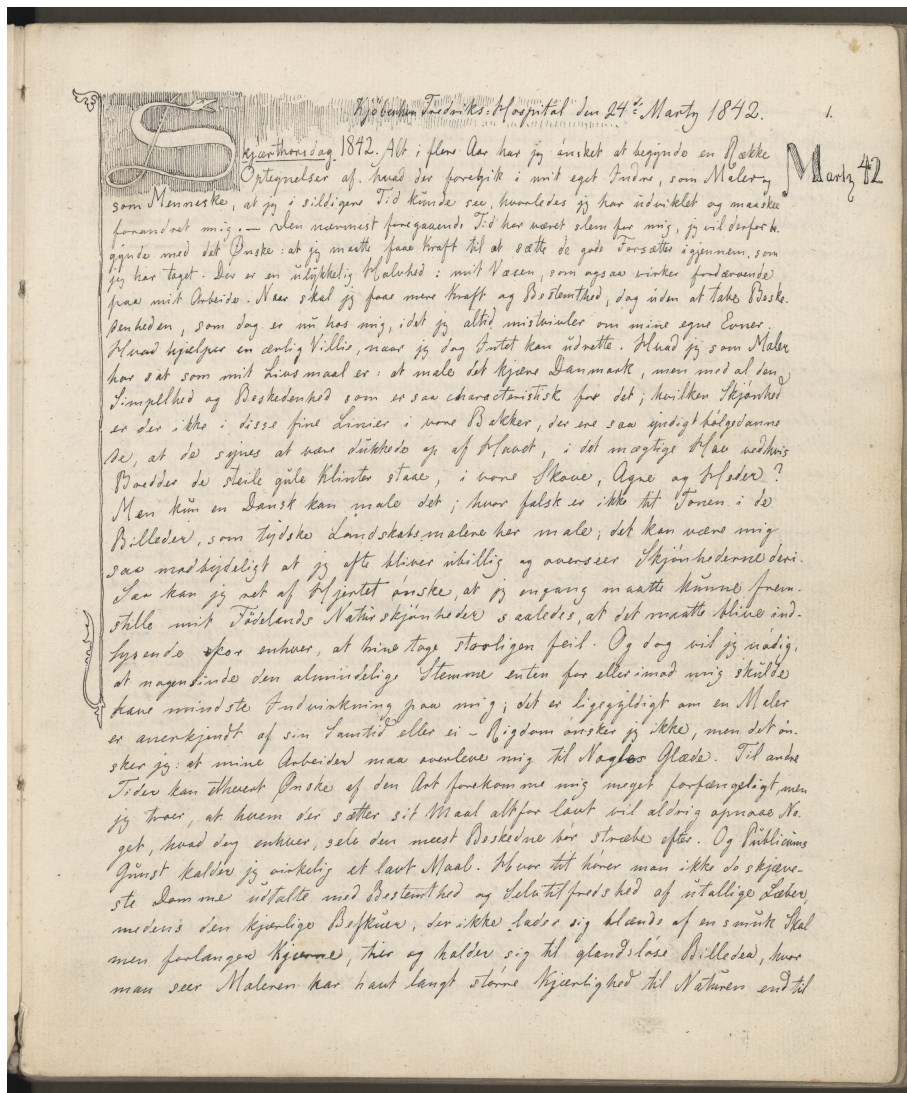 Kjöbenhavn Fredriks-Hospital den 24de Martz 1842. 1.
Skjærthorsdag 1842. Alt i flere Aar har jeg ønsket at begynde en Række
Martz 42
Optegnelser af, hvad der foregik i mit eget Indre, som Maler og
som Menneske, at jeg i sildigere Tid kunde see, hvorledes jeg har udviklet og maaskee
forandret mig. — Den nærmest foregaaende Tid har været slem for mig, jeg vil derfor be-
gynde med det Ønske: at jeg maatte faae Kraft til at sætte de gode Forsætter igjennem, som
jeg har taget. Der er en ulykkelig Halvhed i mit Væsen, som ogsaa virker fordærvende
paa mit Arbeide. Naar skal jeg faae mere Kraft og Bestemthed, dog uden at tabe Beske-
denheden, som dog er nu hos mig, idet jeg altid mistvivler om mine egne Evner.
Hvad hjælper en ærlig Villie, naar jeg dog Intet kan udrette. Hvad jeg som Maler
har sat som mit Livsmaal er: at male det kjære Danmark, men med al den
Simpelhed og Beskedenhed som er saa characteristisk for det; hvilken Skjønhed
er der ikke i disse fine Linier i vore Bakker, der ere saa yndigt bølgedanne
de, at de synes at være dukkede op af Havet, i det mægtige Hav ved hvis
Bredder de steile gule Klinter staae, i vore Skove, Agre og Heder?
Men kun en Dansk kan male det; hvor falsk er ikke tit Tonen i de
Billeder, som tydske Landskabsmalere her male; det kan være mig
saa modbydeligt at jeg ofte bliver ubillig og overseer Skjönhederne deri.
Saa kan jeg ret af Hjertet ønske, at jeg engang maatte kunne frem-
stille mit Fødelands Naturskjønheder saaledes, at det maatte blive ind-
lysende for enhver, at hine tage storligen feil. Og dog vil jeg nødig,
at nogensinde den almindelige Stemme enten for eller imod mig skulde
have mindste Indvirkning paa mig; det er ligegyldigt om en Maler
er anerkjendt af sin Samtid eller ei – Rigdom ønsker jeg ikke, men det øn-
sker jeg: at mine Arbeider maa overleve mig til Nogles Glæde. Til andre
Tider kan ethvert Ønske af den Art forekomme mig meget forfængeligt, men
jeg troer, at hvem der sætter sit Maal altfor lavt vil aldrig opnaae No-
get, hvad dog enhver, selv den meest Beskedne bør stræbe efter. Og Publicums
Gunst kalder jeg virkelig et lavt Maal. Hvor tit hører man ikke de skjæve-
ste Domme udtalte med Bestemthed og Selvtilfredshed af utallige Læber,
medens den kjærlige Beskuer, der ikke lader sig blænde af en smuk Skal
men forlanger Kjerne, tier og holder sig til glandsløse Billeder, hvor
man seer Maleren har havt langt større Kjærlighed til Naturen end til